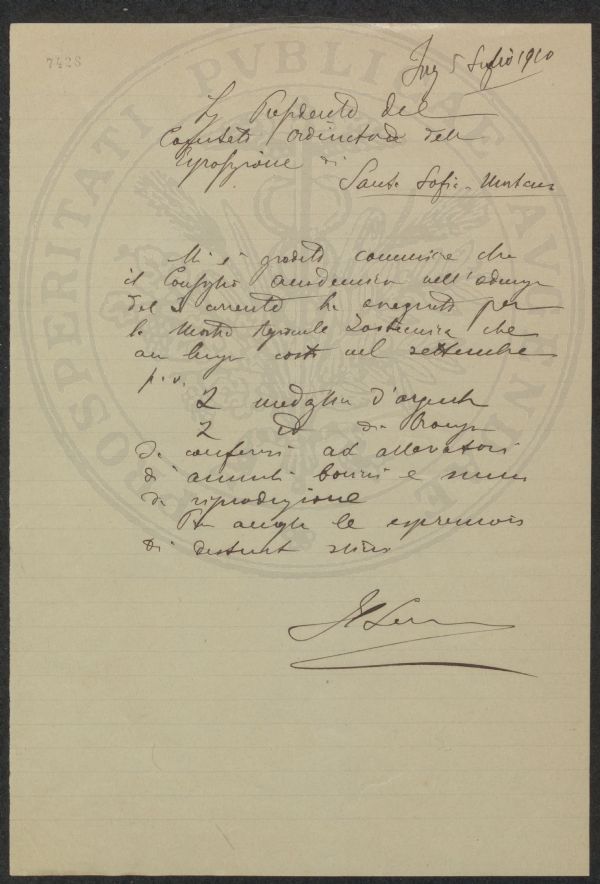 7428
5 Luglio 1910
Presidente del
Comitato ordinatore della
Esposizione di
Santa Sofia
Mi è gradito comunicare che
il Consiglio accademico nell'adunanza
del 3 corrente ha assegnato per
la Mostra Agricola Zootecnica che
avrà luogo costì nel settembre
p. v.
2 medaglie d'argento
2 id di bronzo
da conferirsi ad allevatori
di animali bovini e suini
da riproduzione
le espressioni
di distinta stima
PROSPERITATI PVBLICAE AVGENDAE